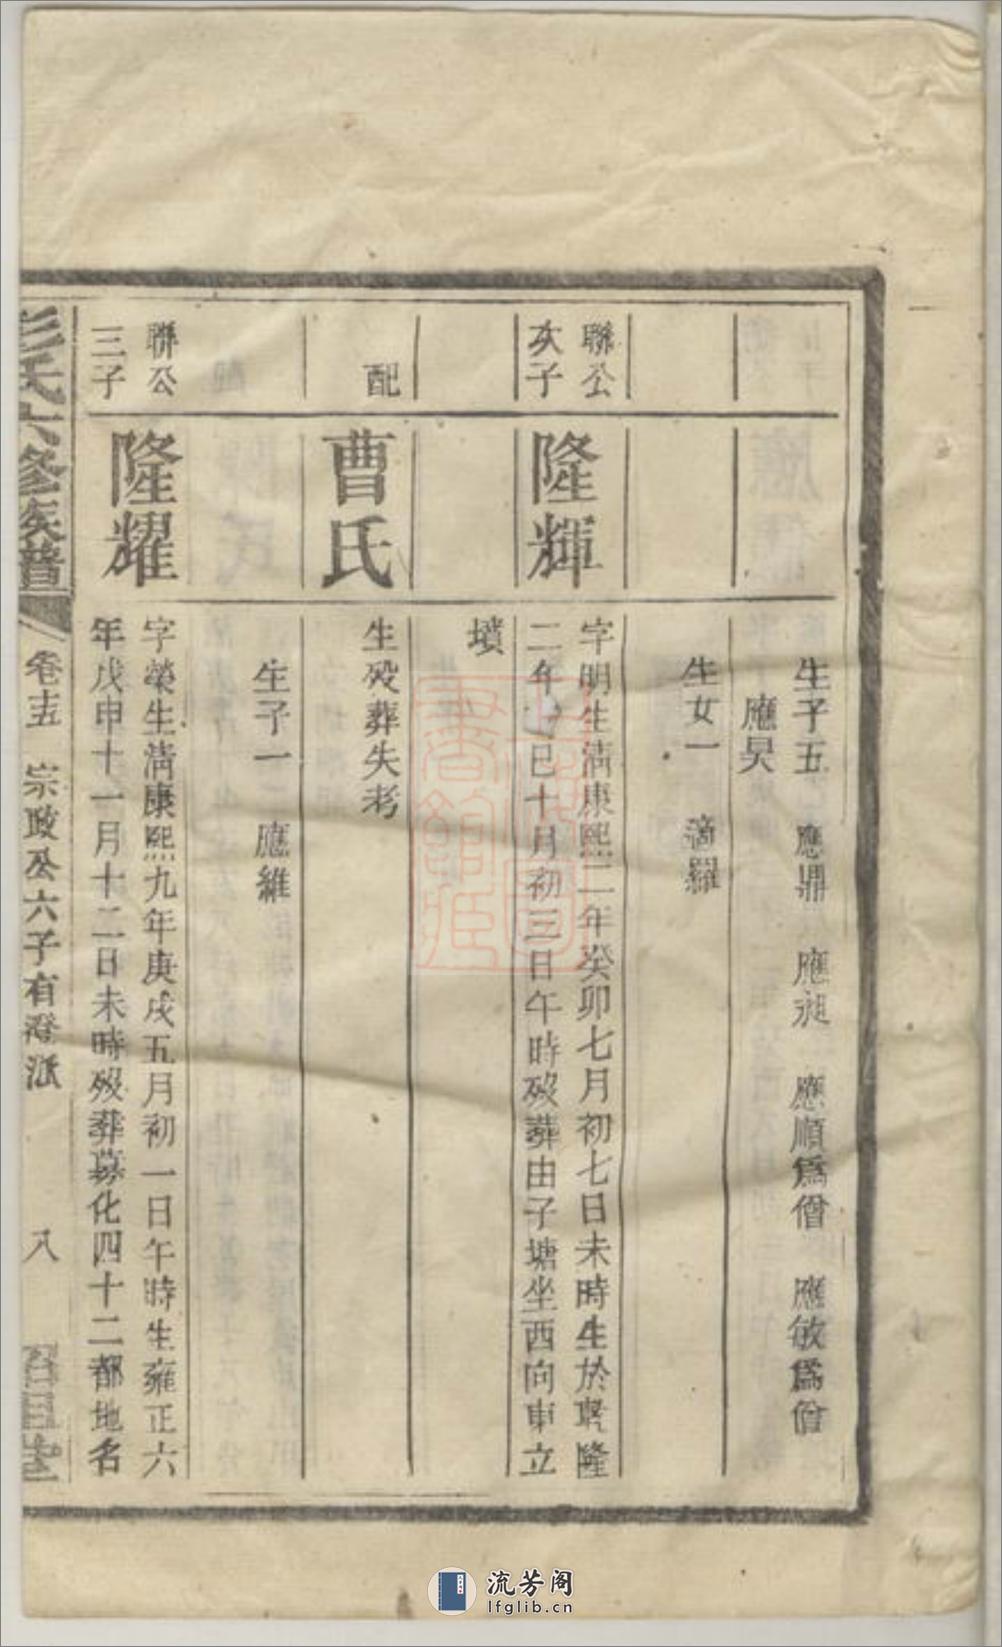 生子五 應鼎 應昶 應順為僧 應敏為僧
應昊
生女一 適羅
聯公
次子
隆輝
字明生清康熙二年癸卯七月初七日未時生於乾隆
二年巳十月初三日午時歿葬由子塘坐西向申立
墳
配
曹氏
生歿葬失考
生子一 應維
聯公
三子
隆耀
字榮生清康熙九年庚戌五月初一日午時生雍正六
年戊申十一月十二日未時歿葬慕化四十二都地名
彭氏六修族譜
卷十五 宗政公六子有澄派
八
上海圖書館藏
流芳阁
lfglib.cn